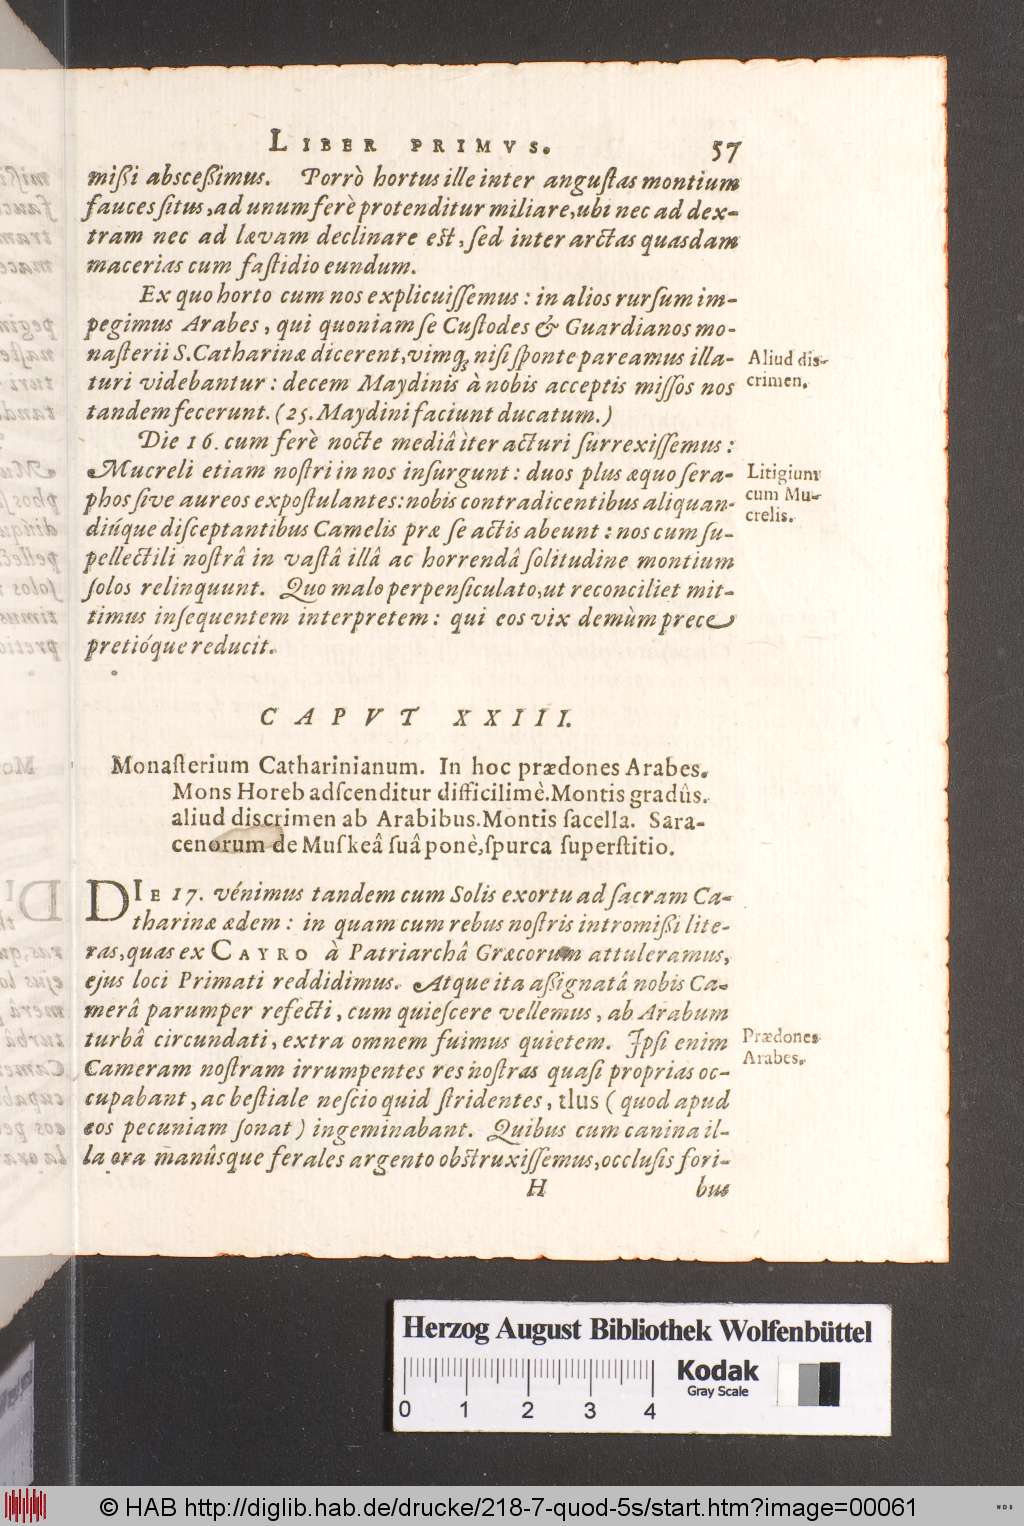 LIBER PRIMVS. 57
mißi abſceßimus. Porrò hortus ille inter anguſtas montium
fauces ſitus, ad unum ferè protenditur miliare, ubi nec ad dex-
tram nec ad lævam declinare eſt, ſed inter arctas quasdam
macerias cum faſtidio eundum.
Ex quo horto cum nos explicuiſſemus: in alios rurſum im-
pegimus Arabes, qui quoniam ſe Cuſtodes & Guardianos mo-
naſterii S. Catharinæ dicerent, vimq́; niſi ſponte pareamus illa-
turi videbantur: decem Maydinis à nobis acceptis miſſos nos
tandem fecerunt. (25. Maydini faciunt ducatum.)
Aliud dis-
crimen.
Die 16. cum ferè nocte mediâ iter acturi ſurrexiſſemus:
Mucreli etiam noſtri in nos inſurgunt: duos plus æquo ſera-
phos ſive aureos expoſtulantes: nobis contradicentibus aliquan-
diúque diſceptantibus Camelis præ ſe actis abeunt: nos cum ſu-
pellectili noſtrâ in vaſtâ illâ ac horrendâ ſolitudine montium
ſolos relinquunt. Quo malo perpenſiculato, ut reconciliet mit-
timus inſequentem interpretem: qui eos vix demùm prece
pretióque reducit.
Litigium
cum Mu-
crelis.
CAPVT XXIII.
Monaſterium Catharinianum. In hoc prædones Arabes.
Mons Horeb adſcenditur difficilimè. Montis gradûs.
aliud discrimen ab Arabibus. Montis ſacella. Sara-
cenorum de Muſkeâ ſuâ ponè, ſpurca ſuperſtitio.
DIE 17. vénimus tandem cum Solis exortu ad ſacram Ca-
tharinæ ædem: in quam cum rebus noſtris intromißi lite-
ras, quas ex CAYRO à Patriarchâ Græcorum attuleramus,
ejus loci Primati reddidimus. Atque ita aßignatâ nobis Ca-
merâ parumper refecti, cum quieſcere vellemus, ab Arabum
turbâ circundati, extra omnem fuimus quietem. Ipſi enim
Cameram noſtram irrumpentes res noſtras quaſi proprias oc-
cupabant, ac beſtiale neſcio quid ſtridentes, tlus (quod apud
eos pecuniam ſonat) ingeminabant. Quibus cum canina il-
la ora manûsque ferales argento obſtruxiſſemus, occluſis fori-
Prædones
Arabes.
H bus
Herzog August Bibliothek Wolfenbüttel
Kodak
Gray Scale
0 1 2 3 4
© HAB http://diglib.hab.de/drucke/218-7-quod-5s/start.htm?image=00061